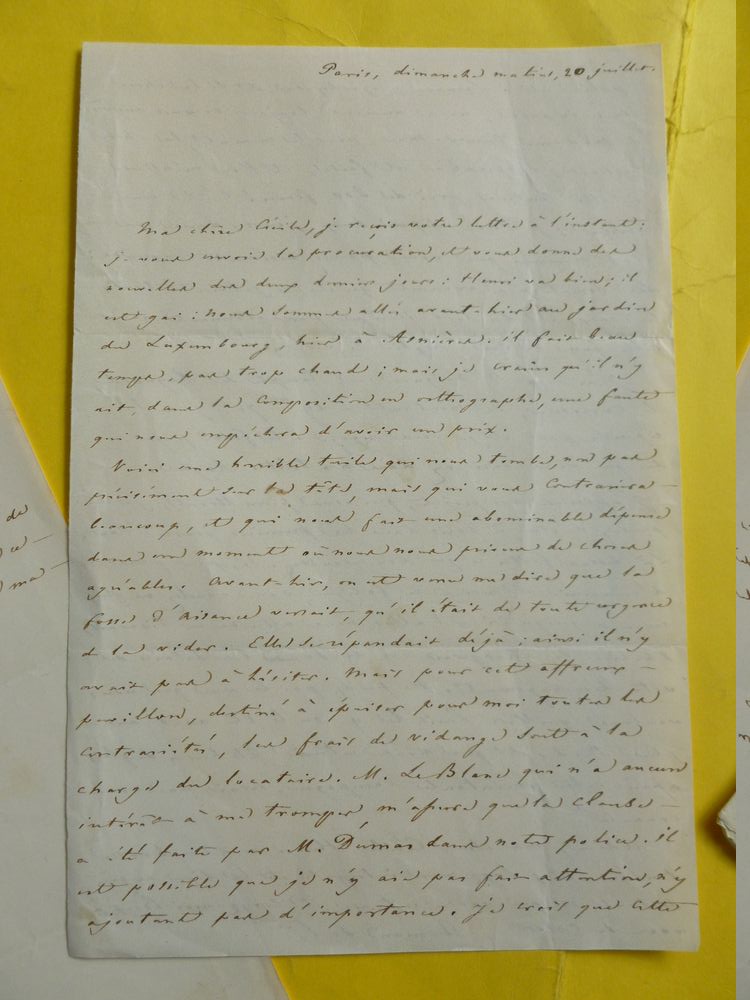 Paris, dimanche matin, 20 juillet.
Ma chère Cécile, je reçois votre lettre à l'instant ;
je vous envoie la procuration, et vous donne des
nouvelles des deux derniers jours : Henri va bien ; il
est gai ; nous sommes allés avant-hier au jardin
du Luxembourg, hier à Asnières. il fait beau
temps, pas trop chaud ; mais je crains qu'il n'y
ait, dans la composition en orthographe, une faute
qui nous empêchera d'avoir un prix.
Voici une horrible tuile qui nous tombe, non pas
précisément sur la tête, mais qui vous contrariera
beaucoup, et qui nous fait une abominable dépense
dans un moment où nous nous privons de choses
agréables. Avant-hier, on est venu me dire que la
fosse d'aisance versait, qu'il était de toute urgence
de la vider. Elle se répandait déjà ; ainsi il n'y
avait pas à hésiter. Mais pour cet affreux
pavillon, destiné à épuiser pour moi toutes les
contrariétés, les frais de vidange sont à la
charge du locataire. M. Le Blanc qui n'a aucun
intérêt à me tromper, m'assure que la clause
a été faite par M. Dumas dans notre police. il
est possible que je n'y aie pas fait attention, n'y
ajoutant pas d'importance. Je crois que cette
de
ce
ma